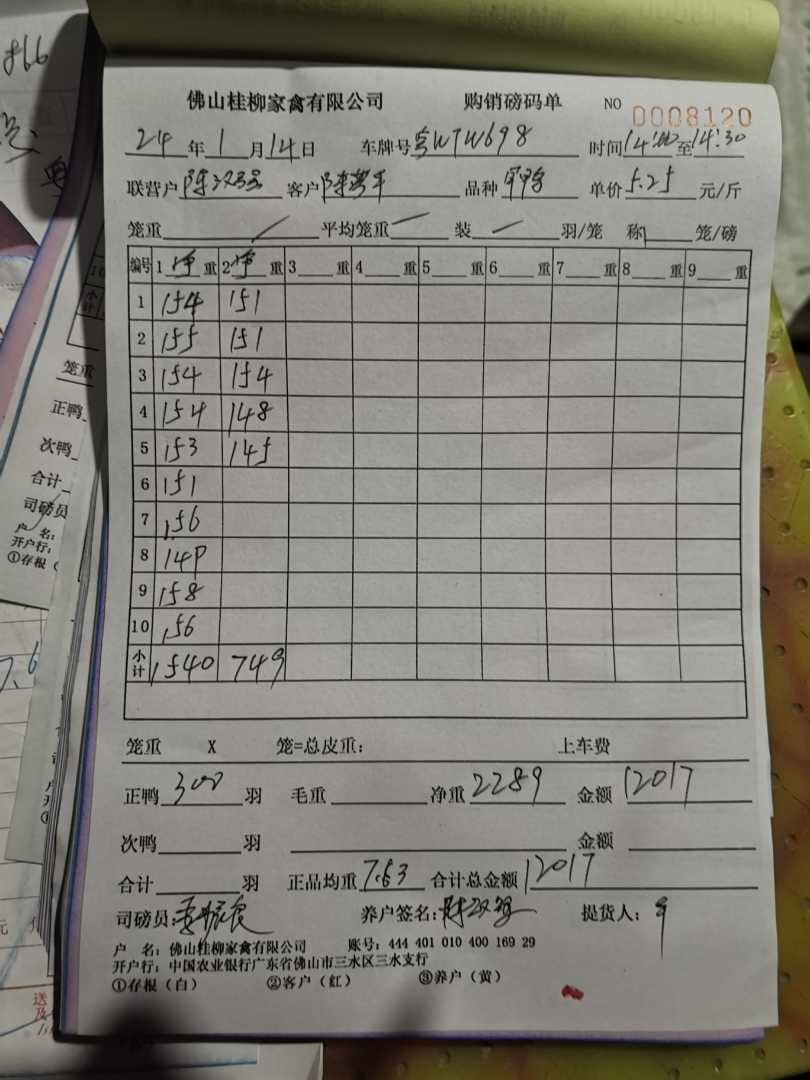 佛山桂柳家禽有限公司 购销磅码单 NO 0008120
24 年 1 月 14 日 车牌号 粤WTW698 时间 14:00 至 14:30
联营户 陈 客户 陈 品种 单价 5.25 元/斤
笼重 / 平均笼重 一 装 一 羽/笼 称 笼/磅
编号 1 净 重 2 净 重 3 重 4 重 5 重 6 重 7 重 8 重 9 重
1 154 151
2 155 151
3 154 154
4 154 148
5 153 145
6 151
7 156
8 149
9 158
10 156
小计 1540 749
笼重 X 笼=总皮重: 上车费
正鸭 300 羽 毛重 净重 2289 金额 12017
次鸭 羽 金额
合计 羽 正品均重 7.63 合计总金额 12017
司磅员: 养户签名: 陈 提货人:
户 名: 佛山桂柳家禽有限公司 账号: 444 401 010 400 169 29
开户行: 中国农业银行广东省佛山市三水区三水支行
①存根(白) ②客户(红) ③养户(黄)
笼重
正鸭
次鸭
合计
司磅员
户 名:
开户行:
①存根(